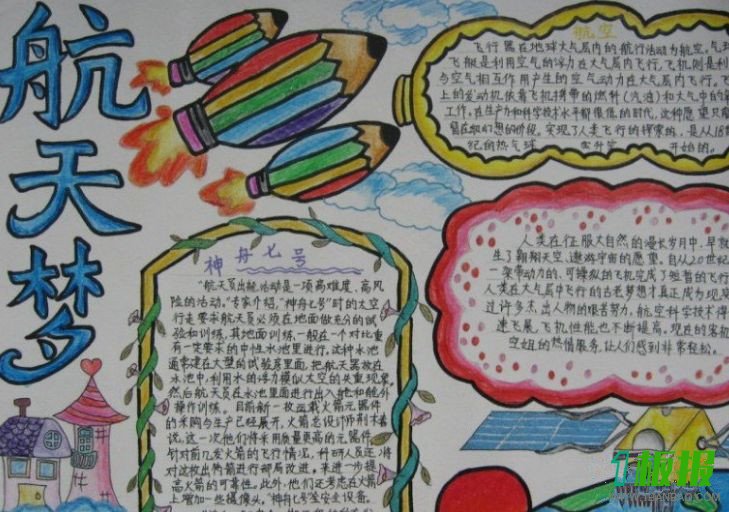 航天梦
航空
飞行器在地球大气层内的航行活动为航空。气球
飞艇是利用空气的浮力在大气层内飞行,飞机则是利
与空气相互作用产生的空气动力在大气层内飞行。飞
上的发动机依靠飞机携带的燃料(汽油)和大气中的
工作。当生产力和科学技术水平都很低的时代,这种愿望只能
留在幻想的阶段。实现了人类飞行的探索的,是从18
纪的热气球 开始的。
人类在征服大自然的漫长岁月中,早就
生了翱翔天空、遨游宇宙的愿望。自从20世纪
一架带动力的、可操纵的飞机完成了短暂的飞行
人类在大气层中飞行的古老梦想才真正成为现实
过许多杰出人物的艰苦努力,航空科学技术得
速飞展,飞机性能也不断提高。现在的客机
空姐的热情服务,让人们感到非常轻松。
神舟七号
“航天员出舱活动是一项高难度、高风
险的活动。”专家介绍,“神舟七号”时的太空
行走要求航天员必须在地面做充分的试
验和训练。其地面训练一般在一个对比重
有一定要求的中性水池里进行。这种水池
通常建在大型的试验房里面,把航天器放在
水池中,利用水的浮力模拟太空的失重现象,
然后航天员在水池里面进行出入舱和舱外
操作训练。目前新一枚运载火箭元器件
的采购与生产已经展开。火箭总设计师荆木春
说,这一次他们将采用质量更高的元器件,
针对前几发火箭的飞行情况,科研人员还将
对这枚出俩箭进行部局改进,来进一步提
高火箭的可靠性。此外,他们还考虑在火箭
上增加一些摄像头。“神舟七号”坐安全设备。
板报
WWW.1BANBAO.COM